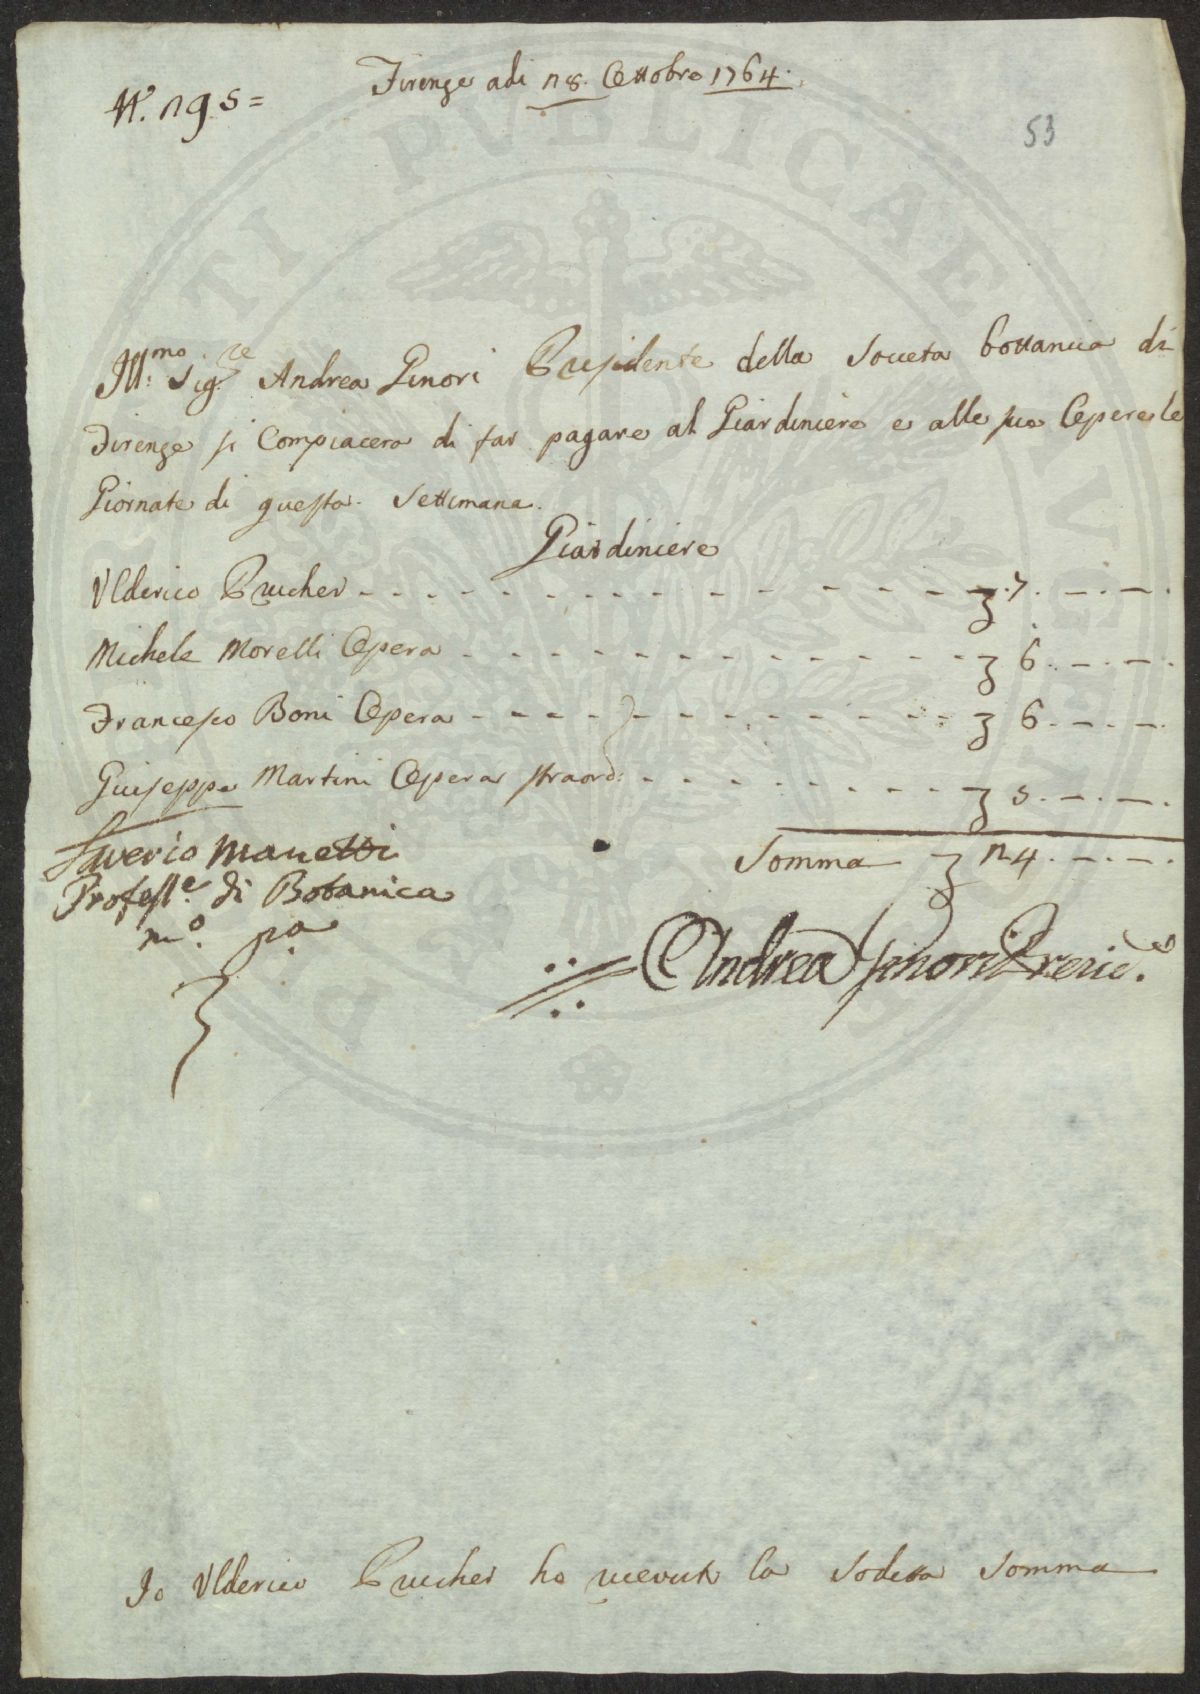 Firenze adi 18. Ottobre 1764.
N.° 195=
53
Ill:mo Sig.re Andrea Ginori Presidente della Societa Bottanica di
Firenze si Compiacera di far pagare al Giardiniere e alle sue Opere le
Giornate di questa Settimana.
Giardiniere
Ulderico Prucher - - - - - - - - - - - - - - - 7. —.—.
Michele Morelli Opera - - - - - - - - - - - - - 6. —.—.
Francesco Boni Opera - - - - - - - - - - - - - 6. —.—.
Giuseppe Martini Opera straord: - - - - - - - - - 5. —.—.
Saverio Manetti
Somma 24. —.—.
Profess.e di Botanica
m.o pa
Andrea Ginori Presid.e
Io Ulderico Prucher ho ricevuto la Sodetta Somma